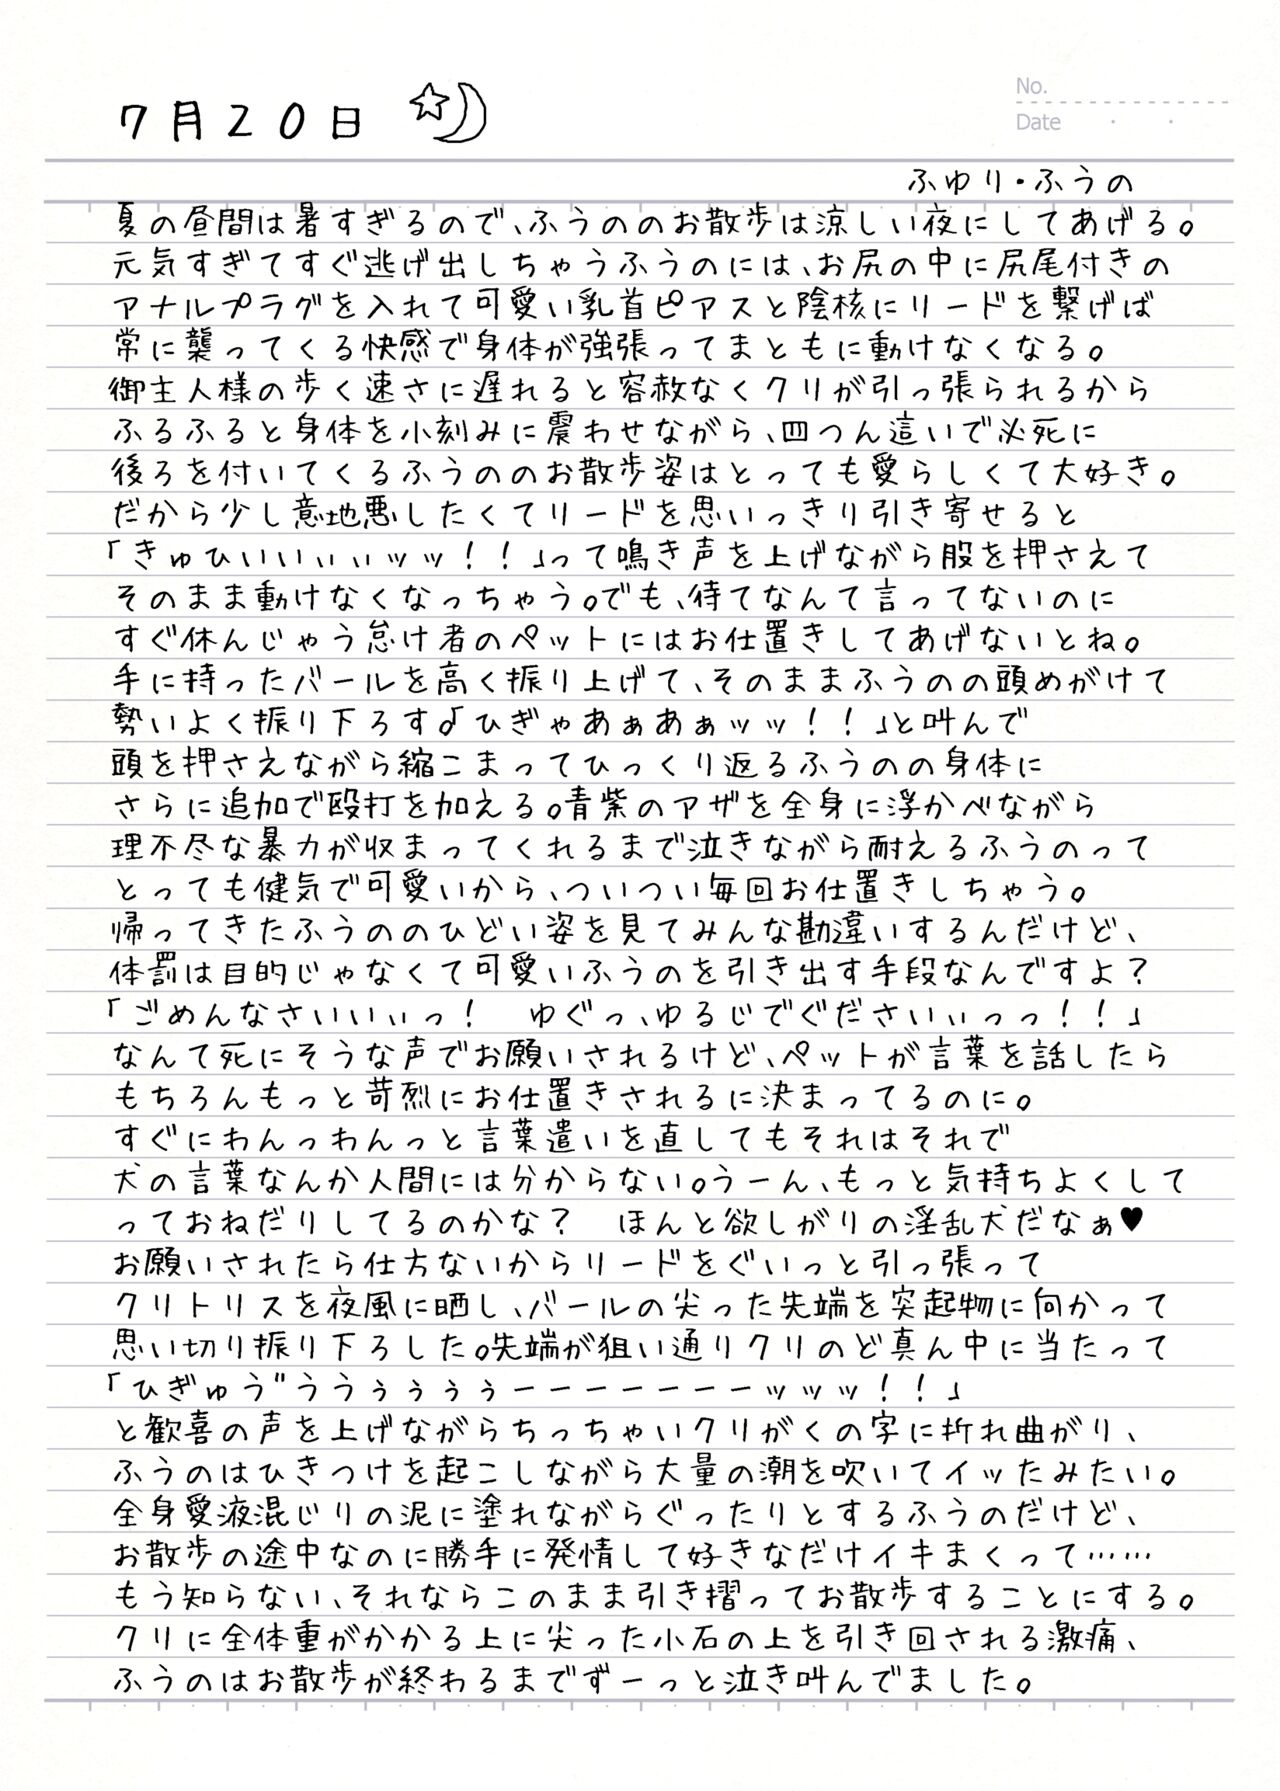 7月20日
No.
Date
ふゆり・ふうの
夏の昼間は暑すぎるので、ふうののお散歩は涼しい夜にしてあげる。
元気すぎてすぐ逃げ出しちゃうふうのには、お尻の中に尻尾付きの
アナルプラグを入れて可愛い乳首ピアスと陰核にリードを繋げば
常に襲ってくる快感で身体が強張ってまともに動けなくなる。
御主人様の歩く速さに遅れると容赦なくクリが引っ張られるから
ふるふると身体を小刻みに震わせながら、四つん這いで必死に
後ろを付いてくるふうののお散歩姿はとっても愛らしくて大好き。
だから少し意地悪したくてリードを思いっきり引き寄せると
「きゅひいいぃぃぃッッ！！」って鳴き声を上げながら股を押さえて
そのまま動けなくなっちゃう。でも、待てなんて言ってないのに
すぐ休んじゃう怠け者のペットにはお仕置きしてあげないとね。
手に持ったバールを高く振り上げて、そのままふうのの頭めがけて
勢いよく振り下ろす。「ひぎゃあぁあぁッッ！！」と叫んで
頭を押さえながら縮こまってひっくり返るふうのの身体に
さらに追加で殴打を加える。青紫のアザを全身に浮かべながら
理不尽な暴力が収まってくれるまで泣きながら耐えるふうのって
とっても健気で可愛いから、ついつい毎回お仕置きしちゃう。
帰ってきたふうののひどい姿を見てみんな勘違いするんだけど、
体罰は目的じゃなくて可愛いふうのを引き出す手段なんですよ？
「ごめんなさいいぃぃっ！　ゆぐっ、ゆるじでぐださいぃぃっっ！！」
なんて死にそうな声でお願いされるけど、ペットが言葉を話したら
もちろんもっと苛烈にお仕置きされるに決まってるのに。
すぐにわんっわんっと言葉遣いを直してもそれはそれで
犬の言葉なんか人間には分からない。うーん、もっと気持ちよくして
っておねだりしてるのかな？　ほんと欲しがりの淫乱犬だなぁ♥
お願いされたら仕方ないからリードをぐいっと引っ張って
クリトリスを夜風に晒し、バールの尖った先端を突起物に向かって
思い切り振り下ろした。先端が狙い通りクリのど真ん中に当たって
「ひぎゅう゛ううぅぅぅぅーーーーーーーッッッ！！」
と歓喜の声を上げながらちっちゃいクリがくの字に折れ曲がり、
ふうのはひきつけを起こしながら大量の潮を吹いてイッたみたい。
全身愛液混じりの泥に塗れながらぐったりとするふうのだけど、
お散歩の途中なのに勝手に発情して好きなだけイキまくって……
もう知らない、それならこのまま引き摺ってお散歩することにする。
クリに全体重がかかる上に尖った小石の上を引き回される激痛、
ふうのはお散歩が終わるまでずーっと泣き叫んでました。